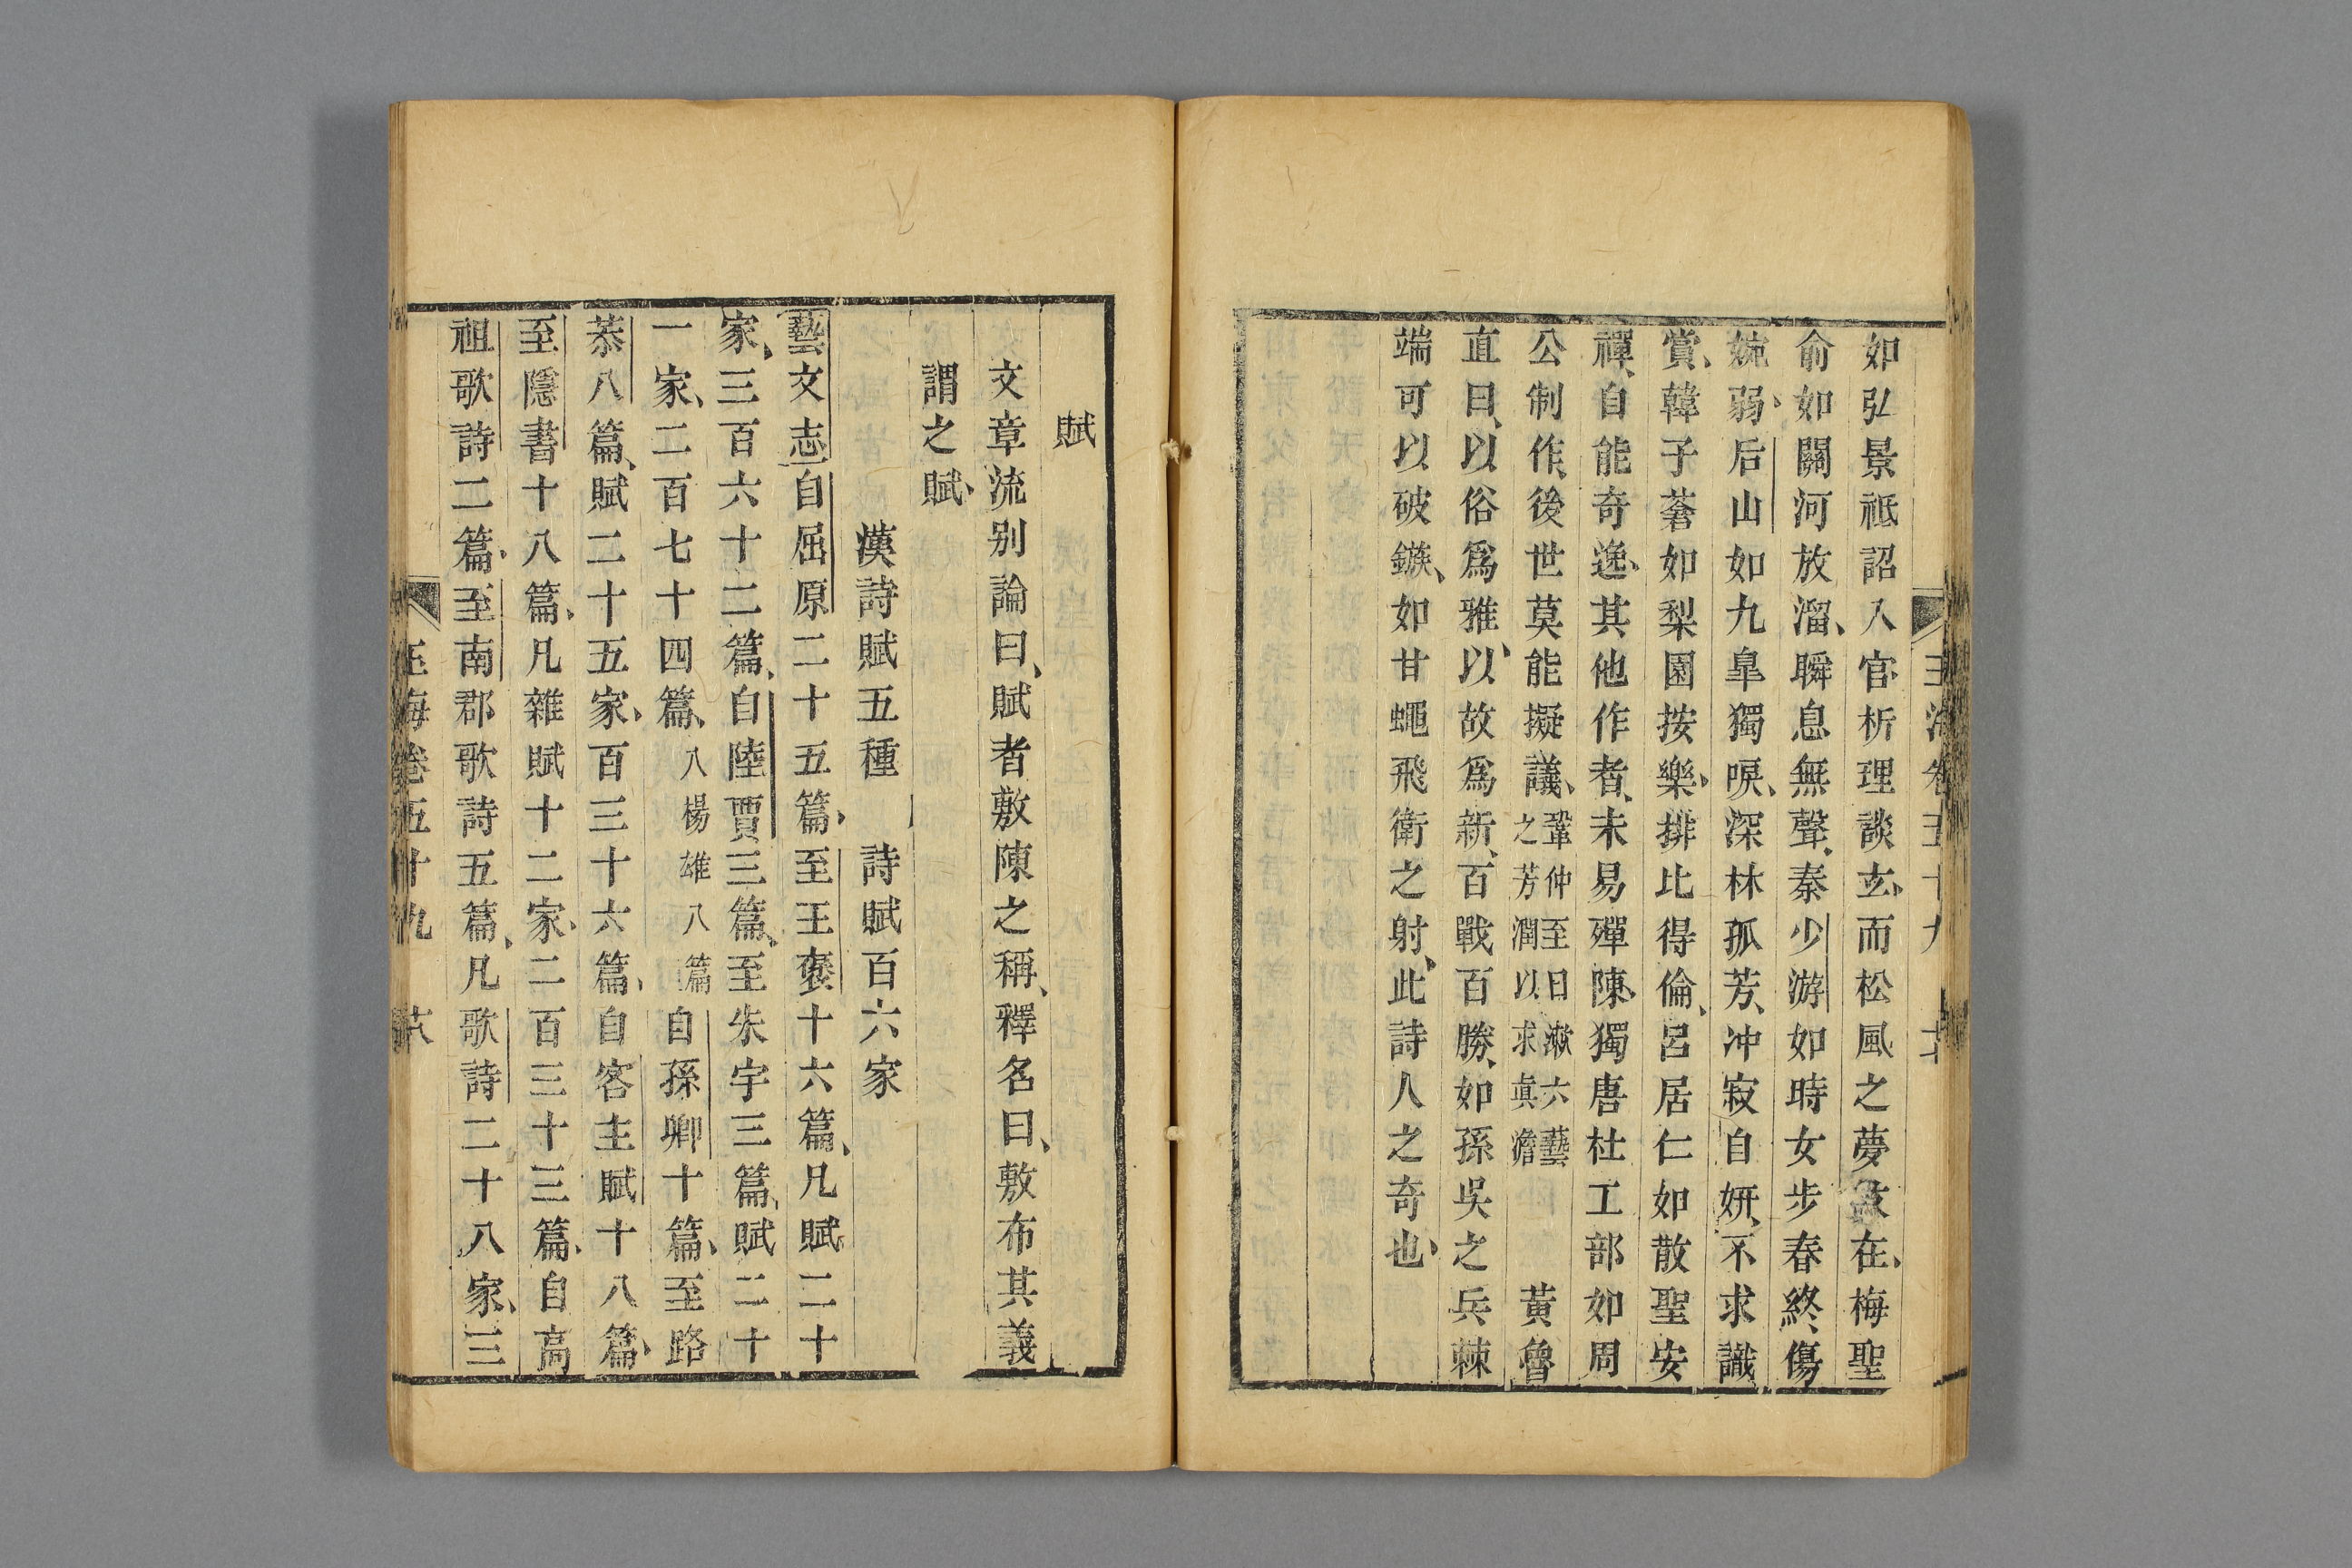 如弘景祗詔入官析理談玄而松風之夢故在梅聖
俞如關河放溜瞬息無聲秦少游如時女步春終傷
婉弱后山如九臯獨唳深林孤芳冲寂自妍不求識
賞韓子蒼如梨園按樂排比得倫呂居仁如散聖安
禪自能奇逸其他作者未易殫陳獨唐杜工部如周
公制作後世莫能擬議鞏仲至曰潄六藝之芳潤以求眞澹黃魯
直曰以俗爲雅以故爲新百戰百勝如孫吳之兵棘
端可以破鏃如甘蠅飛衛之射此詩人之奇也
賦
文章流別論曰賦者敷陳之稱釋名曰敷布其義
謂之賦
漢詩賦五種 詩賦百六家
藝文志自屈原二十五篇至王褒十六篇凡賦二十
家三百六十二篇自陸賈三篇至朱宇三篇賦二十
一家二百七十四篇入楊雄八篇自孫卿十篇至路
恭八篇賦二十五家百三十六篇自客主賦十八篇
至隱書十八篇凡雜賦十二家二百三十三篇自高
祖歌詩二篇至南郡歌詩五篇凡歌詩二十八家三
玉海卷五十九